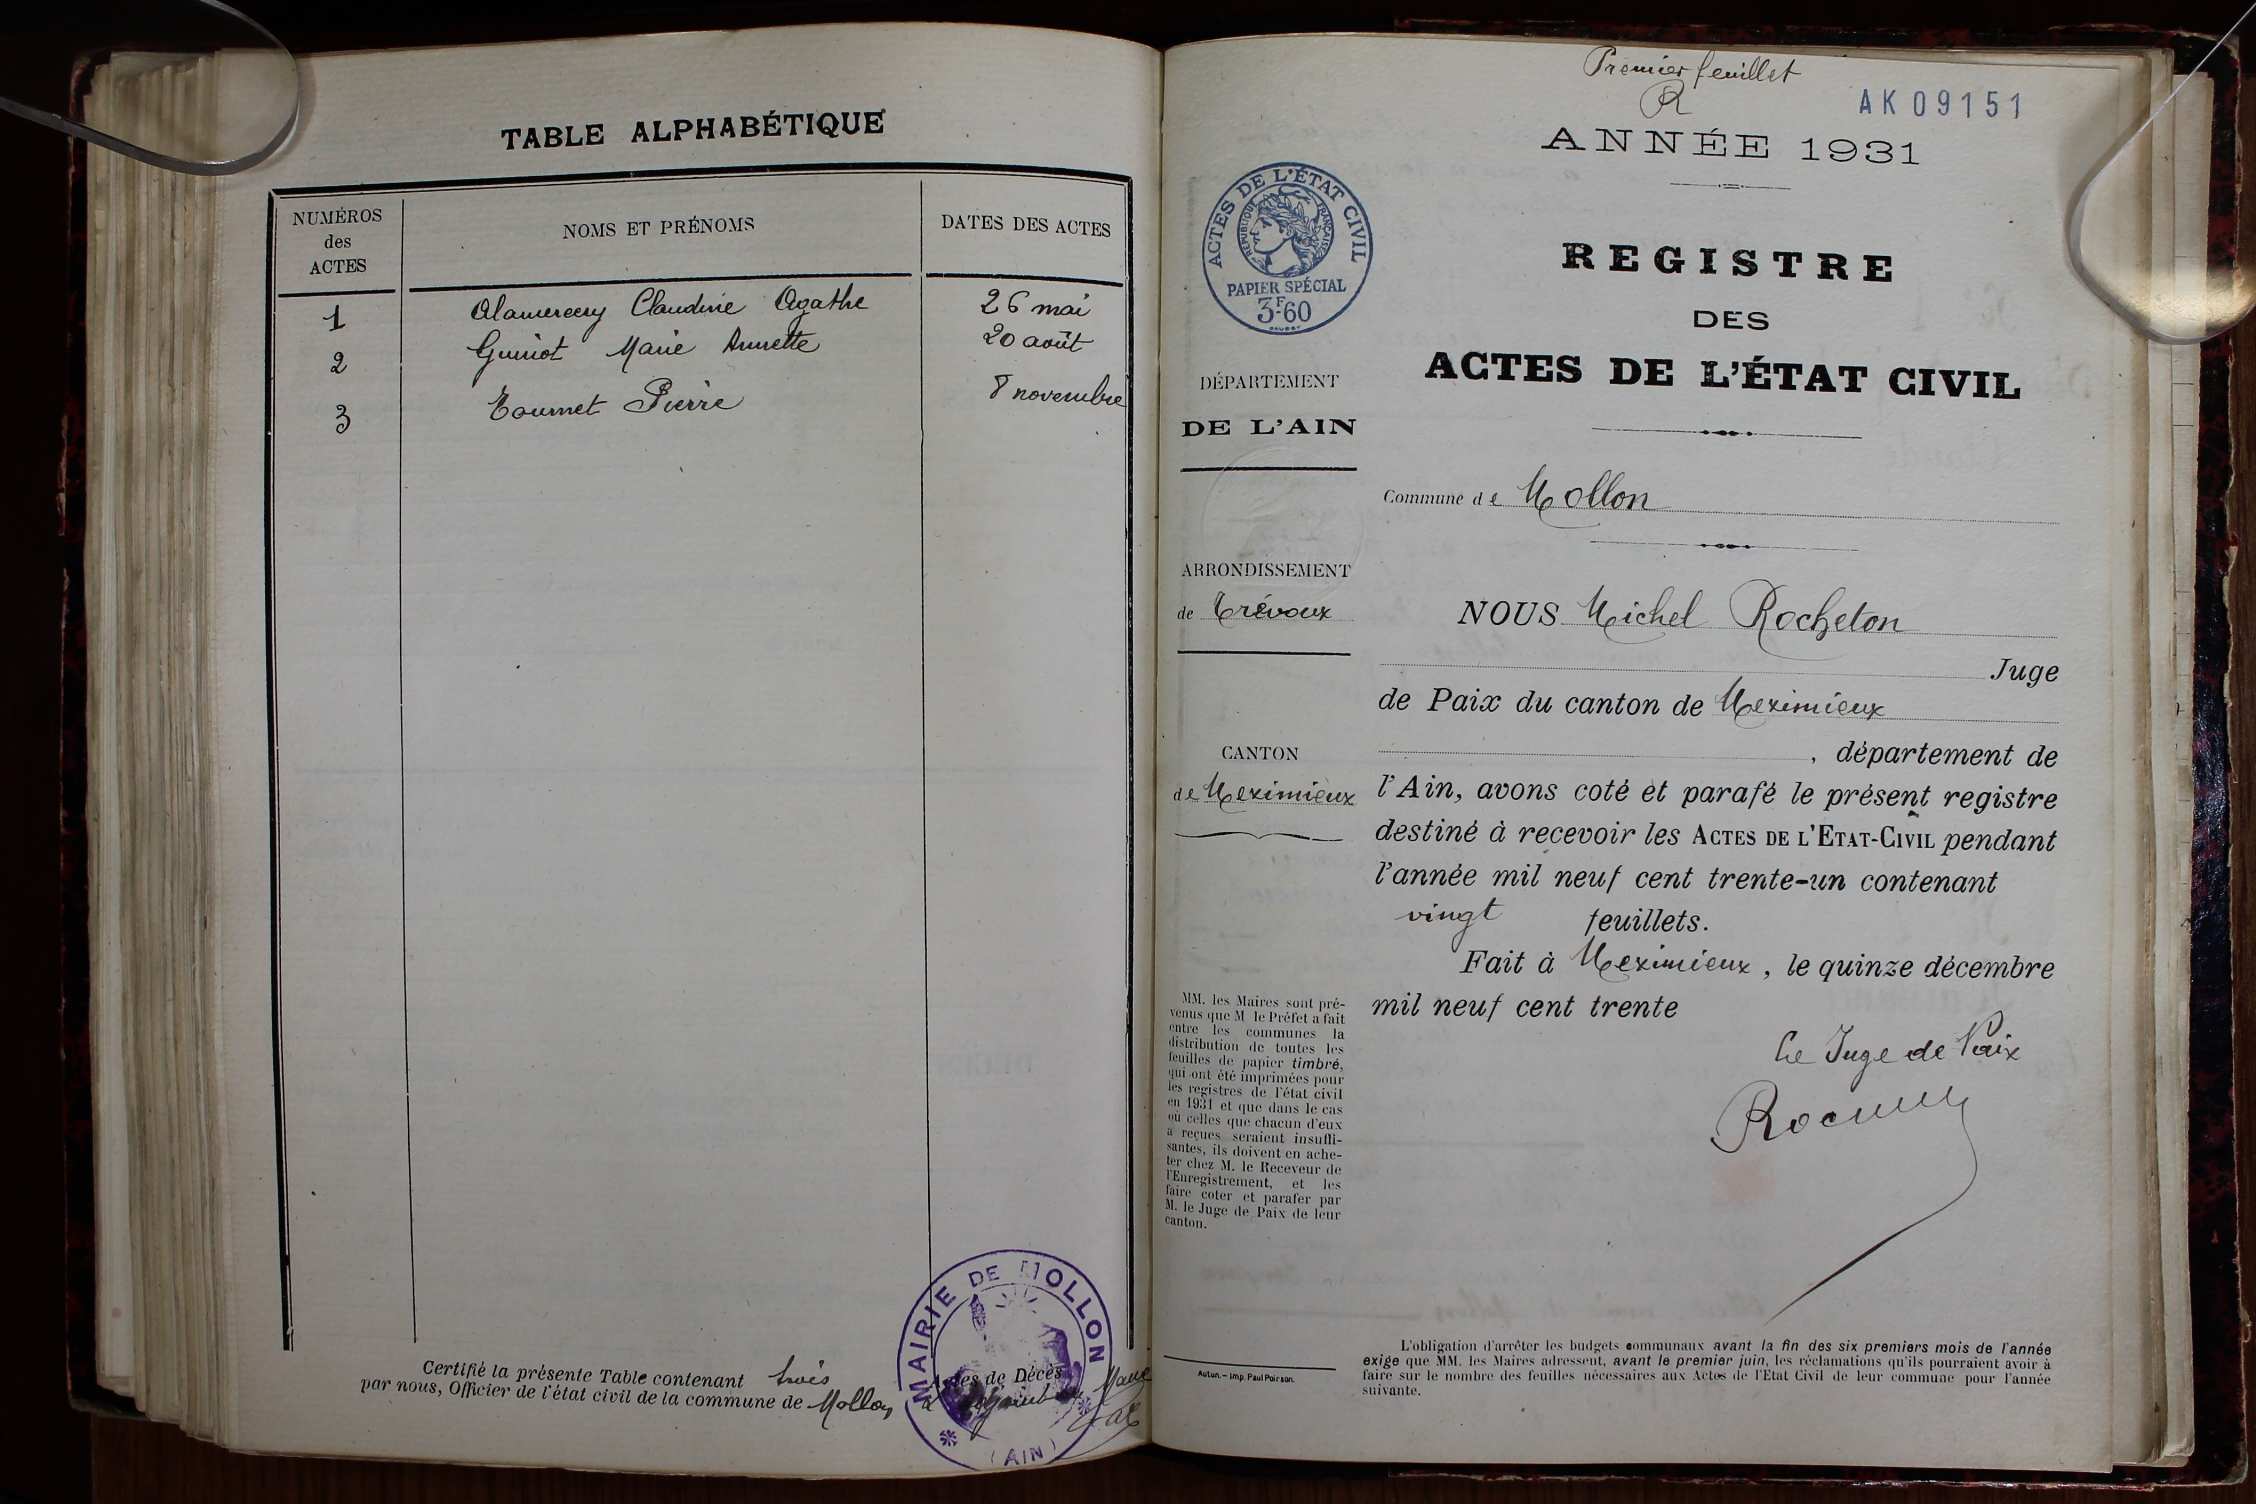 TABLE ALPHABÉTIQUE
NUMÉROS
des
ACTES
NOMS ET PRÉNOMS
DATES DES ACTES
1 Alamercery Claudine Agathe 26 mai
2 Guinot Marie Annette 20 août
3 Tournet Pierre 8 novembre
Certifié la présente Table contenant trois Actes de Décès
par nous, Officier de l'état civil de la commune de Mollon
MAIRIE DE MOLLON
(AIN)
Premier feuillet
R
AK 09151
ANNÉE 1931
ACTES DE L'ÉTAT CIVIL
RÉPUBLIQUE FRANÇAISE
PAPIER SPÉCIAL
3F60
REGISTRE
DES
ACTES DE L'ÉTAT CIVIL
DÉPARTEMENT
DE L'AIN
Commune de Mollon
ARRONDISSEMENT
de Trévoux
CANTON
de Meximieux
NOUS Michel Rocheton
Juge
de Paix du canton de Meximieux
, département de
l'Ain, avons coté et parafé le présent registre
destiné à recevoir les ACTES DE L'ETAT-CIVIL pendant
l'année mil neuf cent trente-un contenant
vingt feuillets.
Fait à Meximieux, le quinze décembre
mil neuf cent trente
Le Juge de Paix
MM. les Maires sont pré-
venus que M le Préfet a fait
entre les communes la
distribution de toutes les
feuilles de papier timbré,
qui ont été imprimées pour
les registres de l'état civil
en 1931 et que dans le cas
où celles que chacun d'eux
a reçues seraient insuffi-
santes, ils doivent en ache-
ter chez M. le Receveur de
l'Enregistrement, et les
faire coter et parafer par
M. le Juge de Paix de leur
canton.
Autun. – Imp. Paul Poirson.
L'obligation d'arrêter les budgets communaux avant la fin des six premiers mois de l'année
exige que MM. les Maires adressent, avant le premier juin, les réclamations qu'ils pourraient avoir à
faire sur le nombre des feuilles nécessaires aux Actes de l'Etat Civil de leur commune pour l'année
suivante.